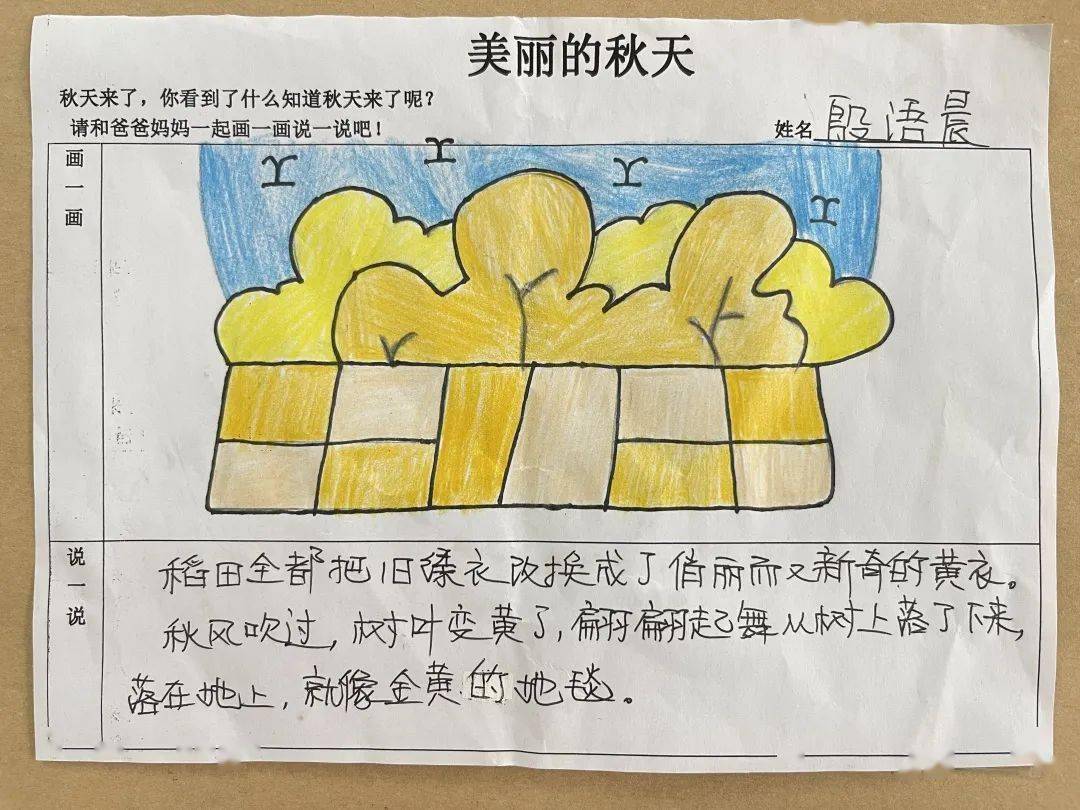 美丽的秋天
秋天来了，你看到了什么知道秋天来了呢？
请和爸爸妈妈一起画一画说一说吧！
姓名 殷浯晨
画一画
说一说
稻田全都把旧绿衣改换成了俏丽而又新奇的黄衣。
秋风吹过，树叶变黄了，翩翩起舞从树上落了下来，
落在地上，就像金黄的地毯。